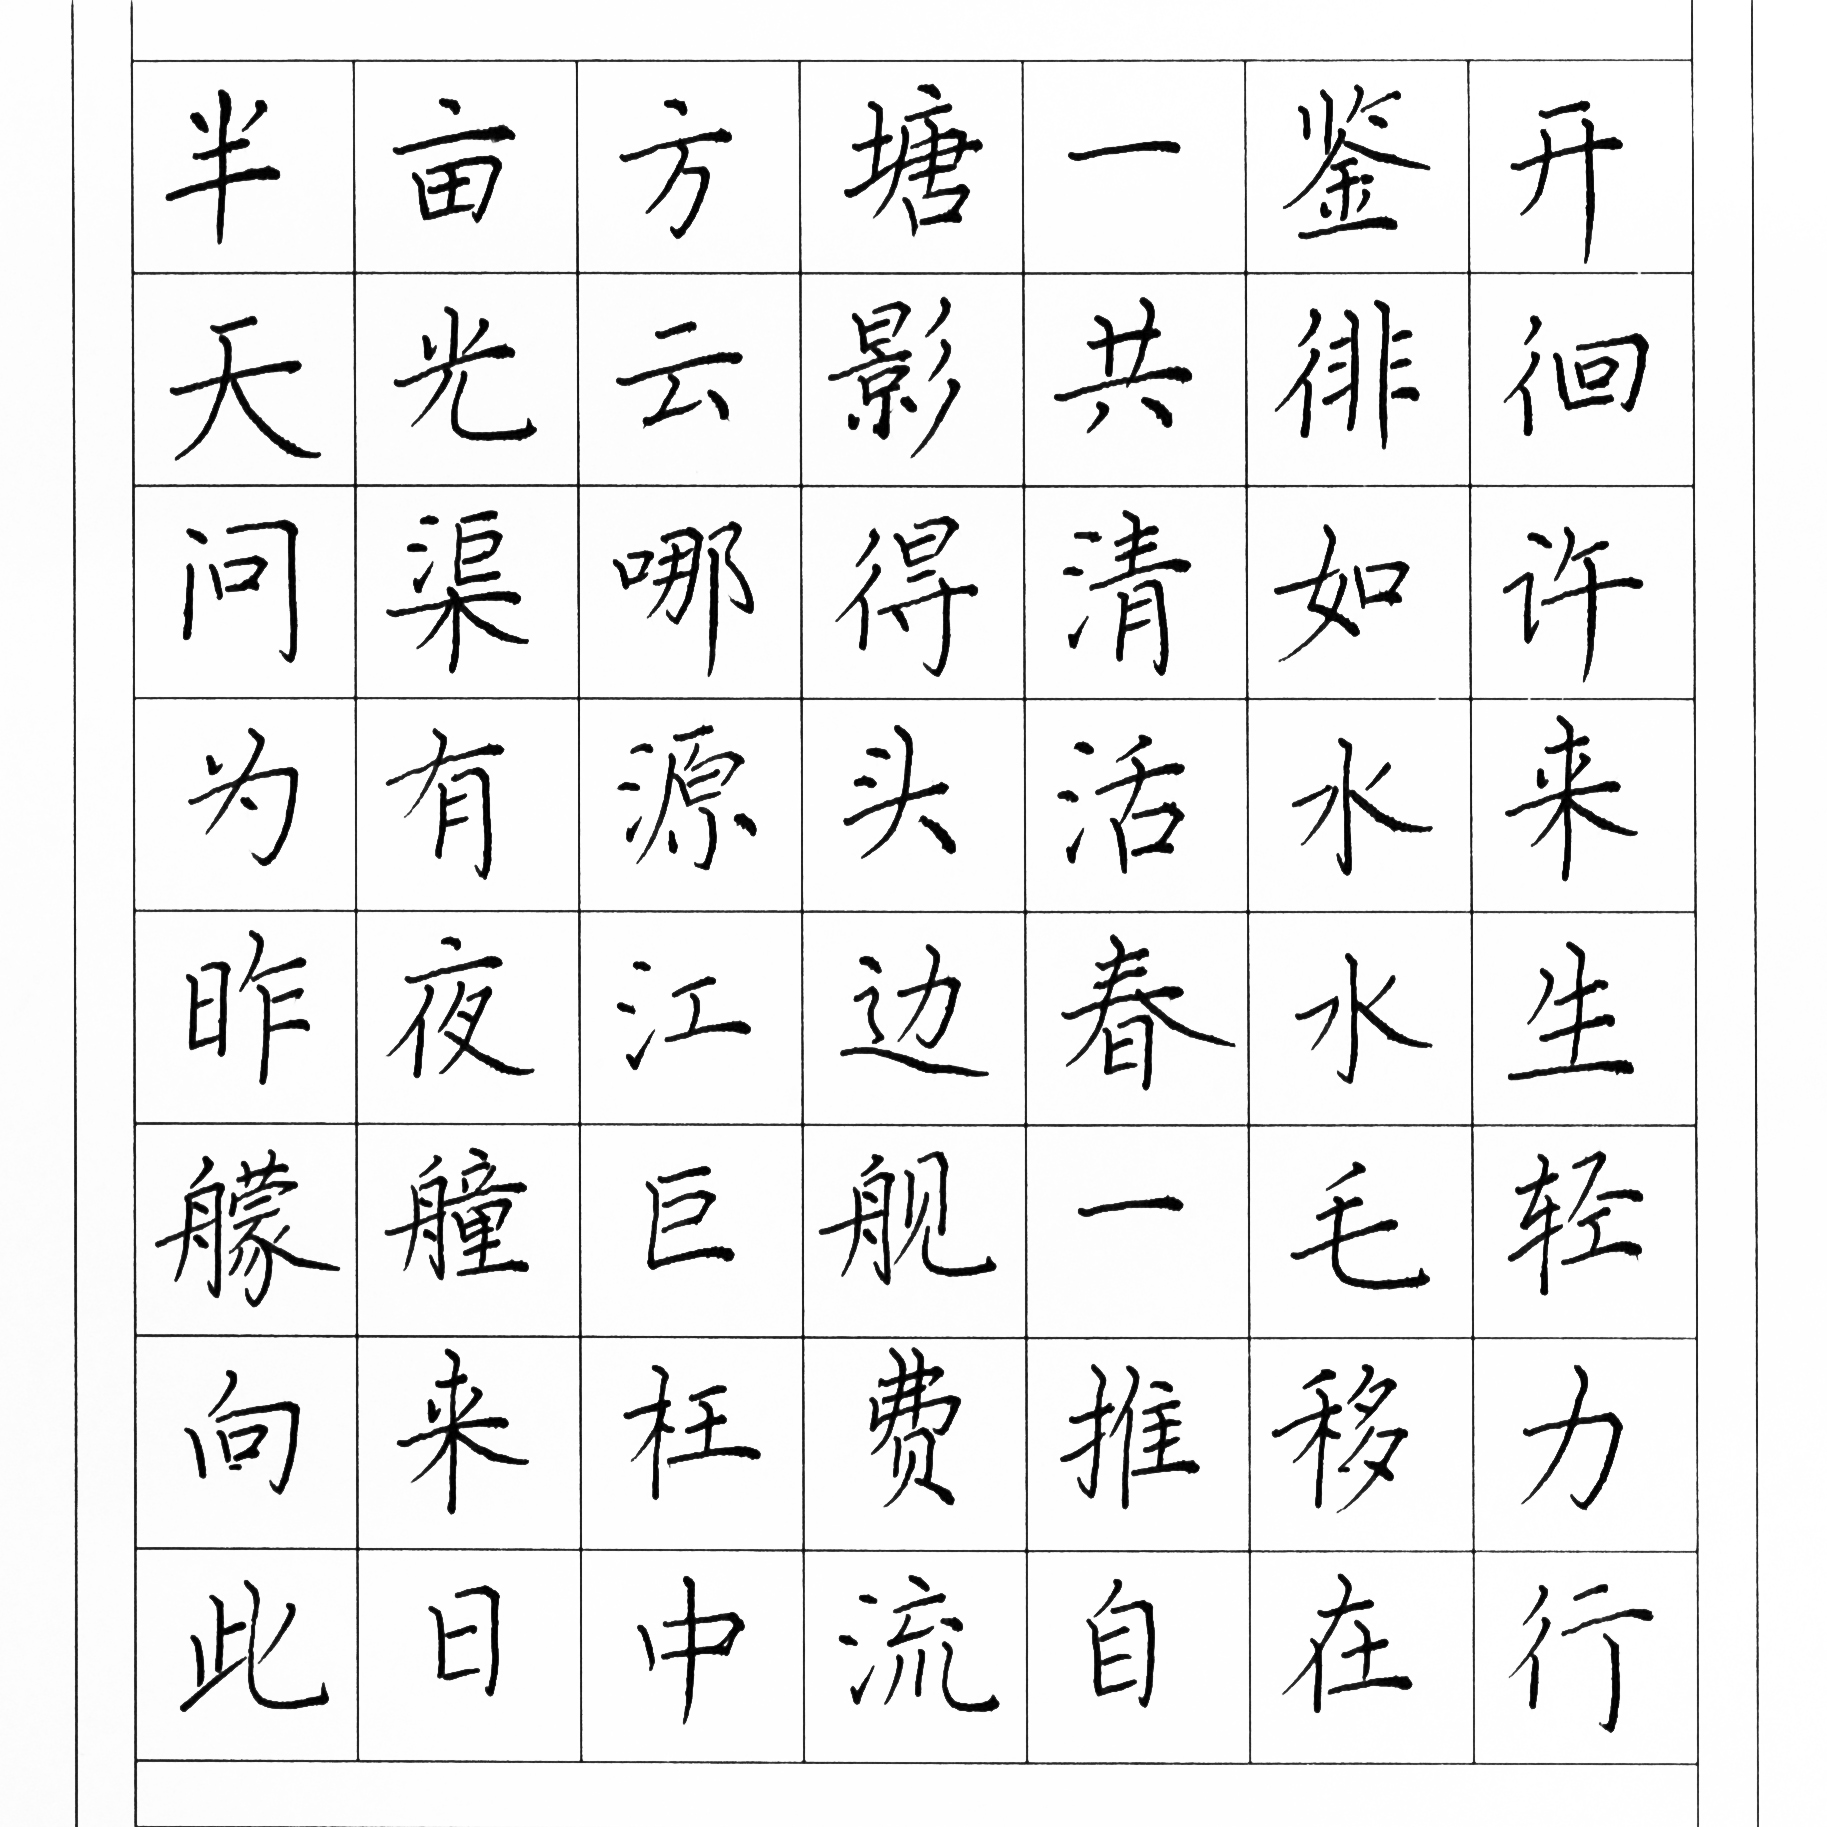 半亩方塘一鉴开
天光云影共徘徊
问渠哪得清如许
为有源头活水来
昨夜江边春水生
艨艟巨舰一毛轻
向来枉费推移力
此日中流自在行